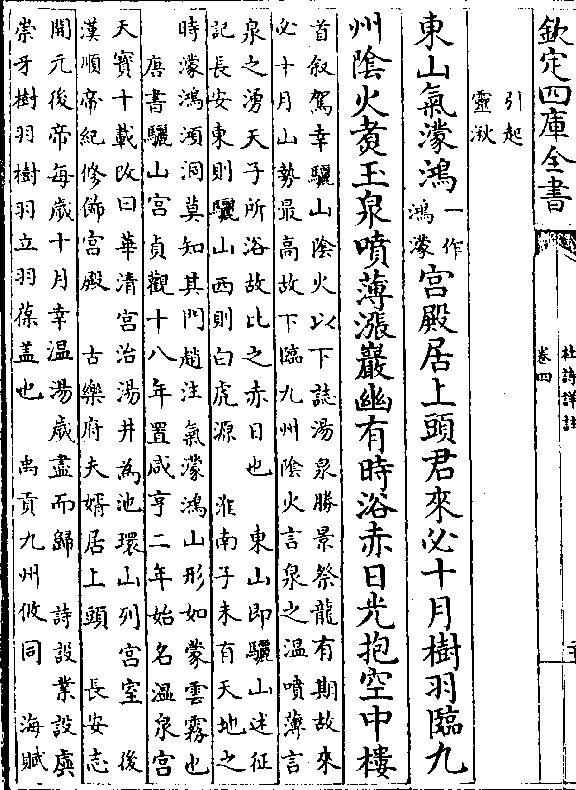 欽定四庫全書
杜詩詳註
卷四
引起
靈湫
東山氣濛鴻一作鴻濛宮殿居上頭君來必十月樹羽臨九
州陰火煑玉泉噴薄漲巖幽有時浴赤日光抱空中樓
首叙駕幸驪山陰火以下誌湯泉勝景祭龍有期故來
必十月山勢最高故下臨九州陰火言泉之溫噴薄言
泉之湧天子所浴故比之赤日也 東山即驪山述征
記長安東則驪山西則白虎源 淮南子未有天地之
時濛鴻澒洞莫知其門趙注氣濛鴻山形如蒙雲霧也
唐書驪山宮貞觀十八年置咸亨二年始名溫泉宮
天寳十載改曰華清宮治湯井為池環山列宮室 後
漢順帝紀修飾宮殿 古樂府夫婿居上頭 長安志
開元後帝每歲十月幸温湯歲盡而歸 詩設業設虡
崇牙樹羽樹羽立羽葆盖也 禹貢九州攸同 海賦